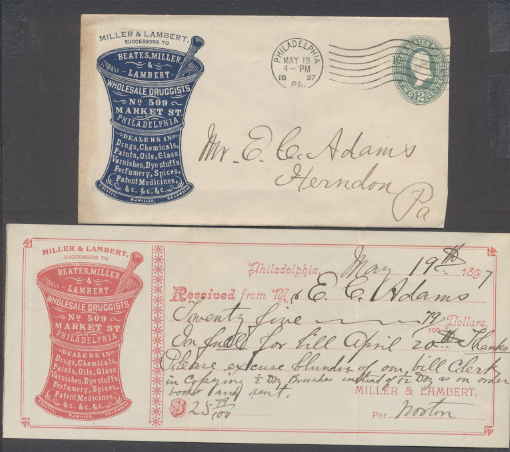 MILLER & LAMBERT,
SUCCESSORS TO
BEATES, MILLER
&
LAMBERT
WHOLESALE DRUGGISTS
No 509
MARKET ST.
PHILADELPHIA
DEALERS IN
Drugs, Chemicals,
Paints, Oils, Glass
Varnishes, Dye stuffs
Perfumery, Spices,
Patent Medicines,
&c. &c. &c.
PHILADELPHIA
MAY 19
4-PM
18 97
PA.
Mr. E. C. Adams
Herndon
Pa
MILLER & LAMBERT,
SUCCESSORS TO
BEATES, MILLER
&
LAMBERT
WHOLESALE DRUGGISTS
No 509
MARKET ST.
PHILADELPHIA
DEALERS IN
Drugs, Chemicals,
Paints, Oils, Glass
Varnishes, Dye stuffs
Perfumery, Spices,
Patent Medicines,
&c. &c. &c.
Philadelphia, May 19th 1897
Received from Mr E. C. Adams
Twenty five Dollars,
In full for bill April 20th Thanks
Please excuse blunder of our bill Clerk
in Copying ½ Doz Brushes instead of 1/12 Doz as on order
book and sent.
MILLER & LAMBERT.
$25
Per Norton